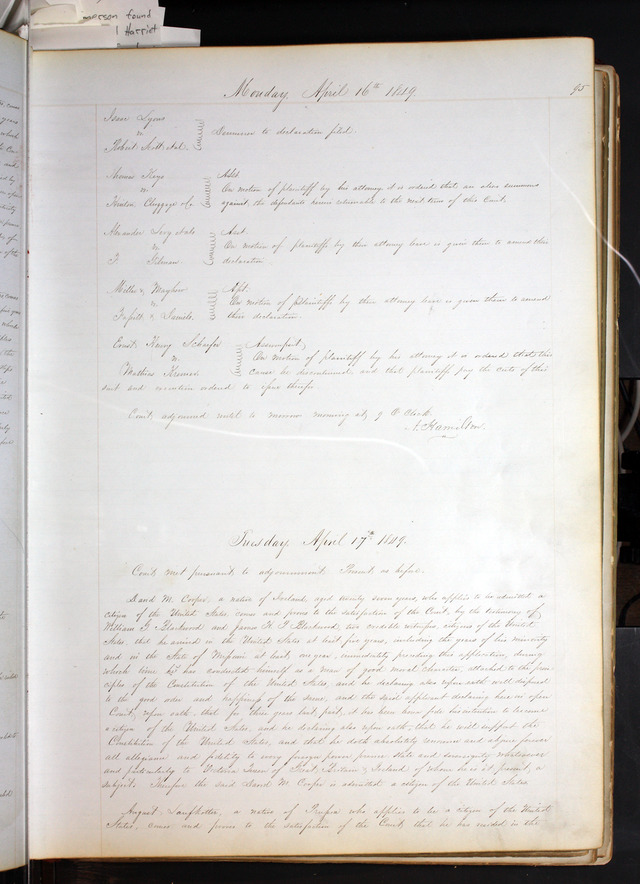 person found
Harriet
Monday April 16th 1849.
95
Isaac Lyons
vs
Robert Scott et al.
Summons to declaration filed.
Thomas Keys
vs
& Co
On motion of plaintiff by his attorney it is ordered that an alias summons
against the defendants herein returnable to the next term of this Court.
Alexander Levy et als
vs
On motion of plaintiffs by their attorney leave is given them to amend their
declaration.
vs
On motion of plaintiffs by their attorney leave is given them to amend
their declaration.
Ernst Henry Schaefer
vs
Mathias
Assumpsit,
On motion of plaintiff by his attorney it is ordered that this
cause be discontinued, and that plaintiff pay the costs of this
suit and execution ordered to issue therefor.
Court adjourned until to morrow morning at 9 O'Clock.
A. Hamilton.
Tuesday April 17th 1849.
Court met pursuant to adjournment. Present as before.
David M. Cooper, a native of Ireland, aged twenty seven years, who applies to be admitted a
citizen of the United States, comes and proves to the satisfaction of the Court, by the testimony of
William G. Blackwood and James H. P. Blackwood, two credible witnesses, citizens of the United
States, that he arrived in the United States at least five years, including the years of his minority
and in the State of Missouri at least one year, immediately preceding this application, during
which time he has conducted himself as a man of good moral character, attached to the prin
ciples of the Constitution of the United States, and he declaring also upon oath well disposed
to the good order and happiness of the same, and the said applicant declaring here in open
Court, upon oath, that for three years last past, it has been bona fide his intention to become
a citizen of the United States, and he declaring also upon oath, that he will support the
Constitution of the United States, and that he doth absolutely renounce and abjure forever
all allegiance and fidelity to every foreign power prince State and sovereignty whatsoever
and particularly to Victoria Queen of Great Britain & Ireland of whom he is at present, a
subject. Therefore the said David M. Cooper is admitted a citizen of the United States
August Laufkotter, a native of Prussia who applies to be a citizen of the United
States, comes and proves to the satisfaction of the Court, that he has resided in the